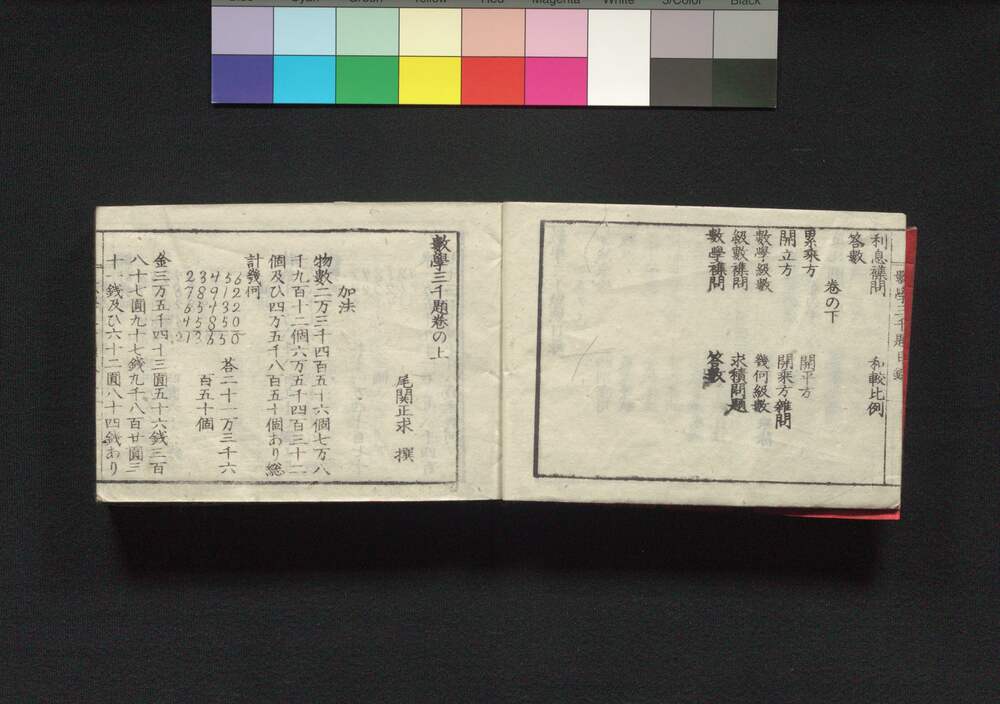 Blue Cyan Green Yellow Red Magenta White 3/Color Black
數學三千題目錄
利息襍問 和較比例
答數
卷の下
累乘方 開平方
開立方 開乘方雜問
數學級數 幾何級數
級數襍問 求積問題
數學襍問 答數
數學三千題卷の上
尾関正求 撰
加法
物數二万三千四百五十六個七万八
千九百十二個六万五千四百三十二
個及ひ四万五千八百五十個あり総
計幾何
23456
78912
65432
45850
213650
答二十一万三千六
百五十個
金三万五千四十三圓五十六銭三百
八十七圓九十七銭九千八百廿圓三
十二銭及ひ六十二圓八十四銭あり